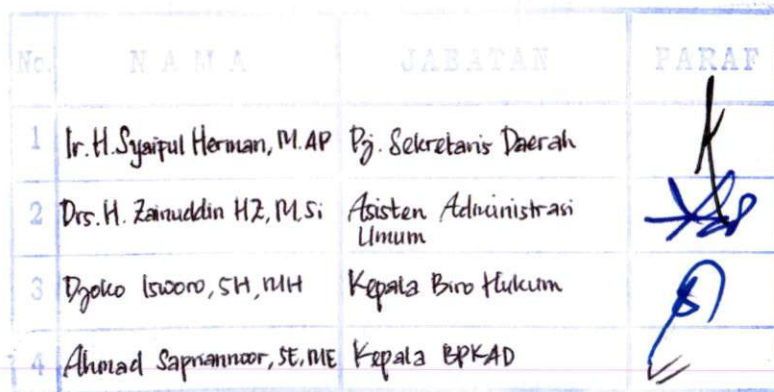 No. NAMA JABATAN PARAF
1 Ir. H. Syaipul Herman, M.AP Pj. Sekretaris Daerah
2 Drs. H. Zainuddin HZ, M,Si Asisten Administrasi
Umum
3 Djoko Isworo, SH, MH Kepala Biro Hukum
4 Ahmad Sapriannoor, SE, ME Kepala BPKAD